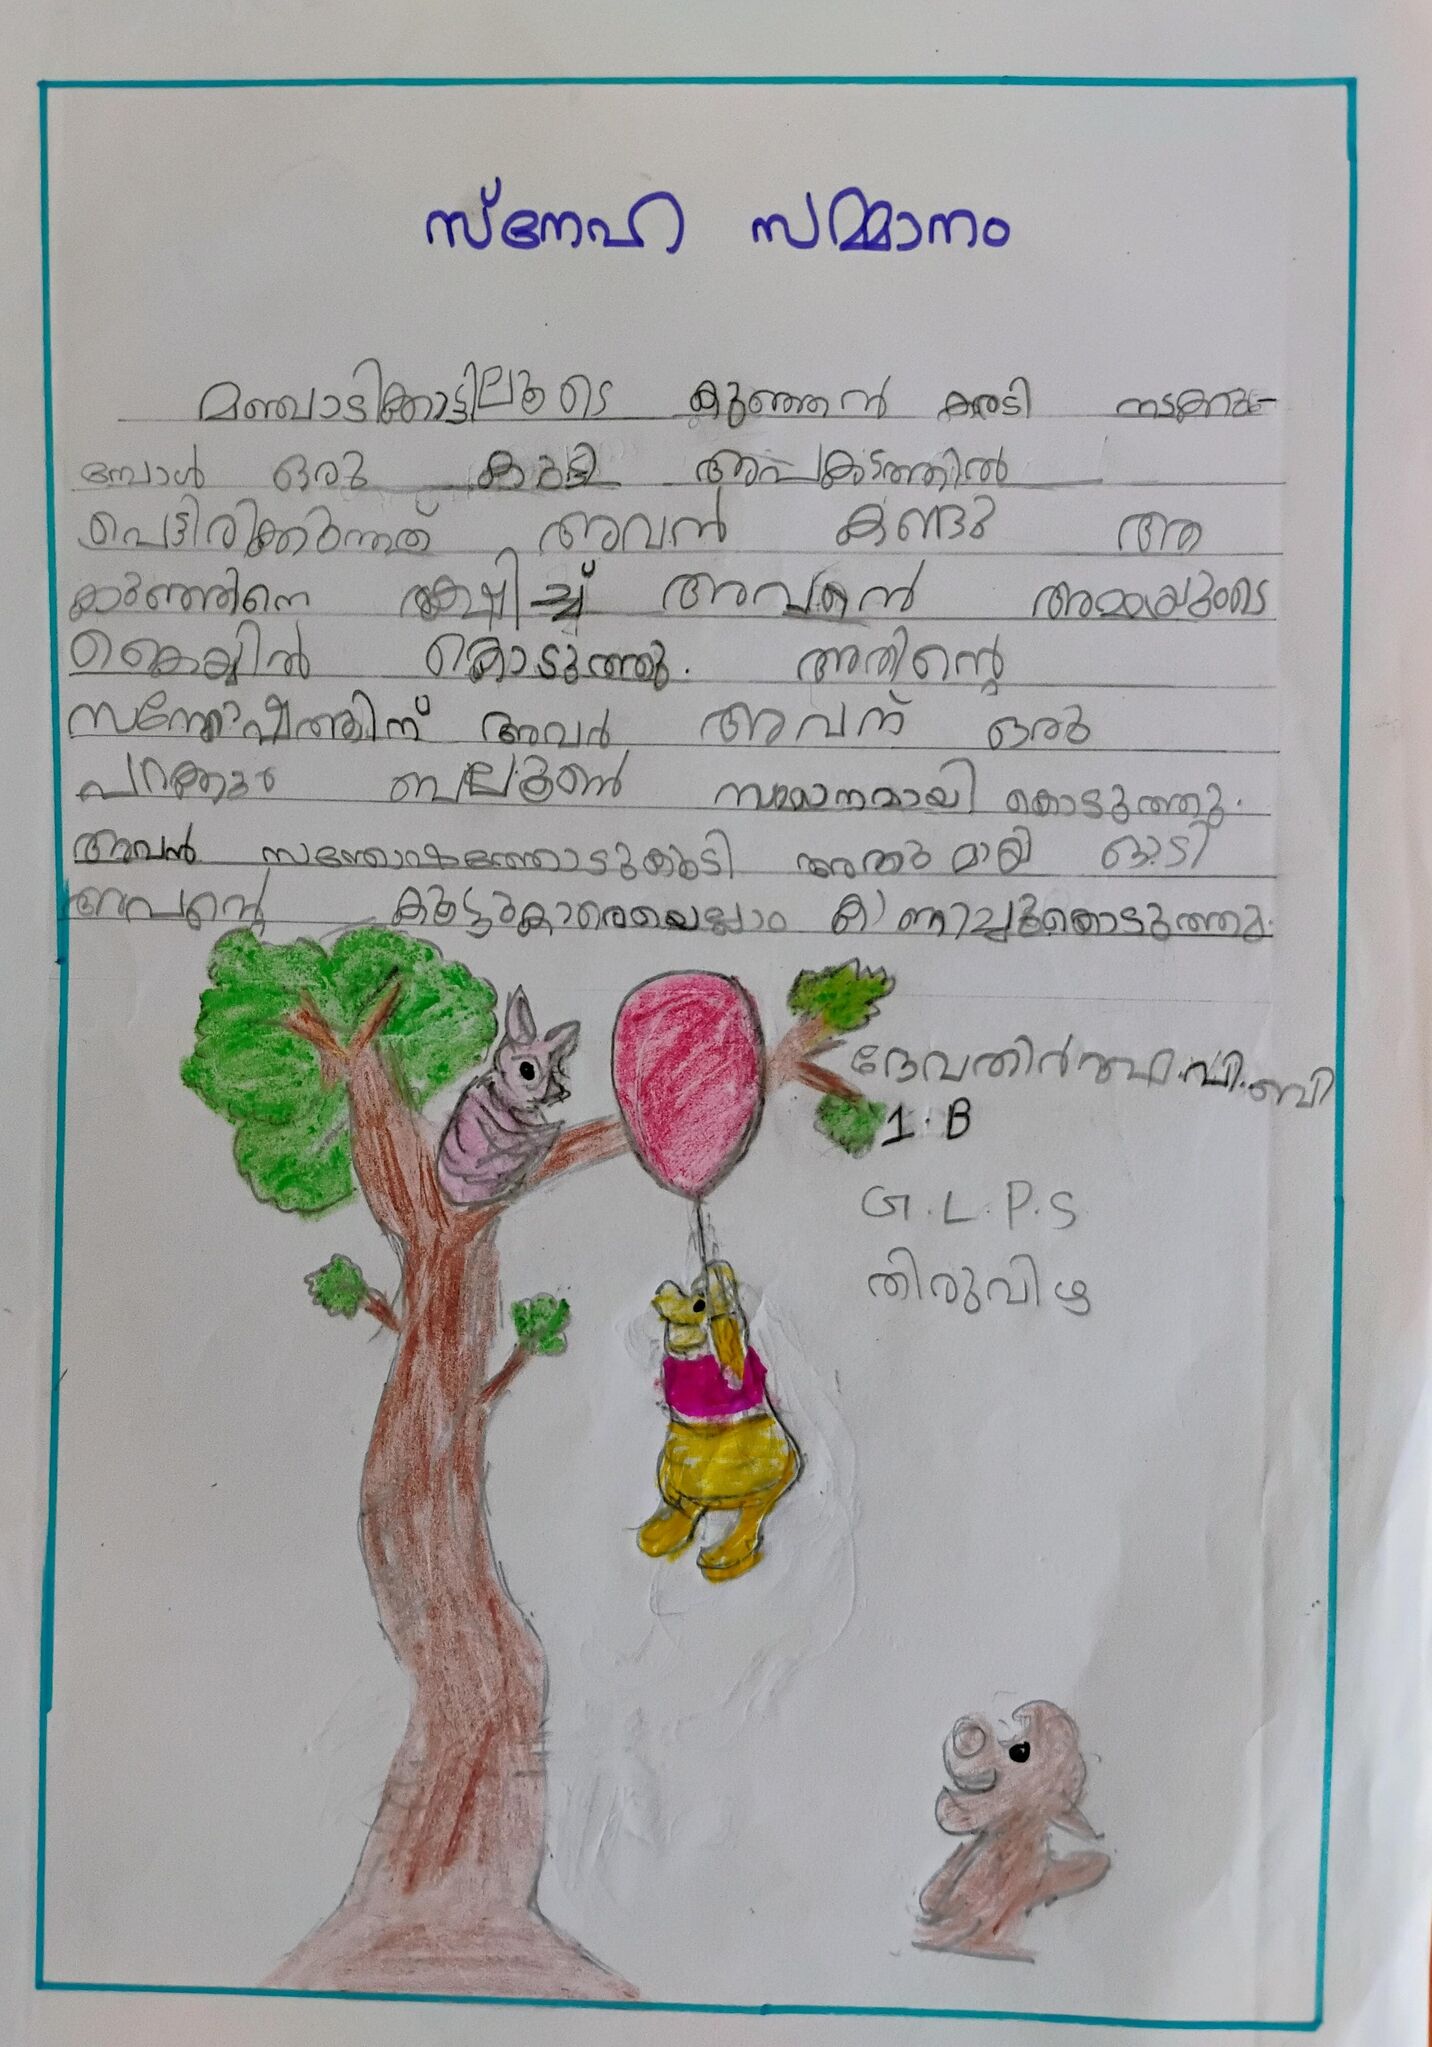 സ്നേഹ സമ്മാനം
മഞ്ചാടിക്കാട്ടിലൂടെ കുഞ്ഞൻ കരടി നടക്കു-
മ്പോൾ ഒരു കുട്ടി അപകടത്തിൽ
പെട്ടിരിക്കുന്നത് അവൻ കണ്ടു ആ
കുഞ്ഞിനെ രക്ഷിച്ച് അവൻ അമ്മയുടെ
കൈയ്യിൽ കൊടുത്തു. അതിന്റെ
സന്തോഷത്തിന് അവർ അവന് ഒരു
പറക്കും ബലൂൺ സമ്മാനമായി കൊടുത്തു.
അവൻ സന്തോഷത്തോടുകൂടി അതുമായി ഓടി
അവന്റെ കൂട്ടുകാരെയെല്ലാം കാണിച്ചുകൊടുത്തു.
1.B
G.L.P.S
തിരുവിഴ